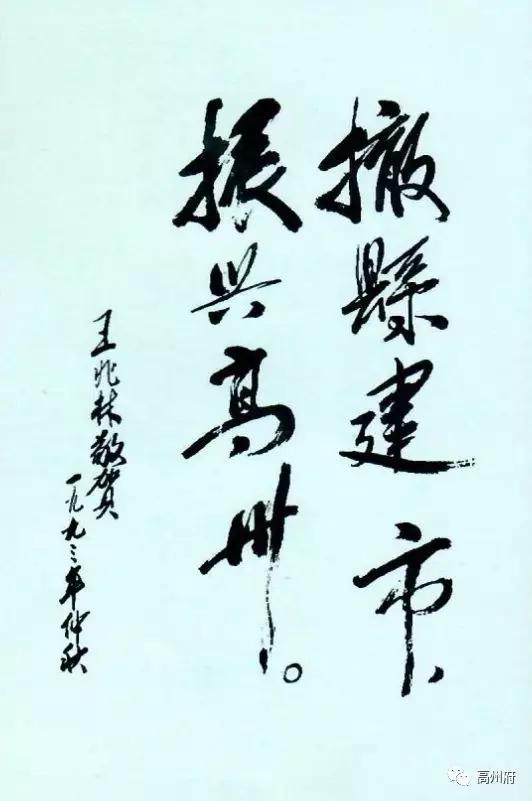 撤縣建市、
振兴高州。
王兆林敬贺
一九九三年仲秋
高州府